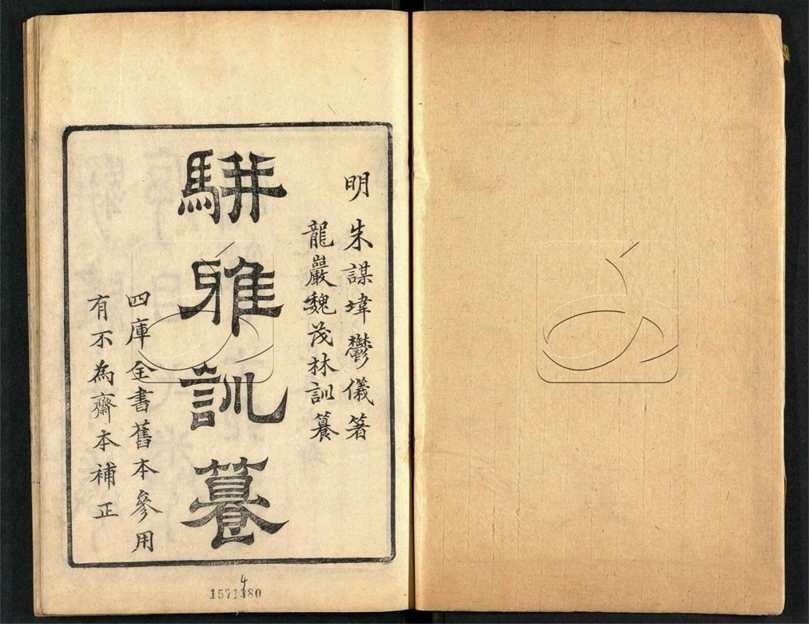 明 朱謀㙔鬱儀箸
龍巖魏茂林訓纂
駢雅訓纂
四庫全書舊本參用
有不為齋本補正